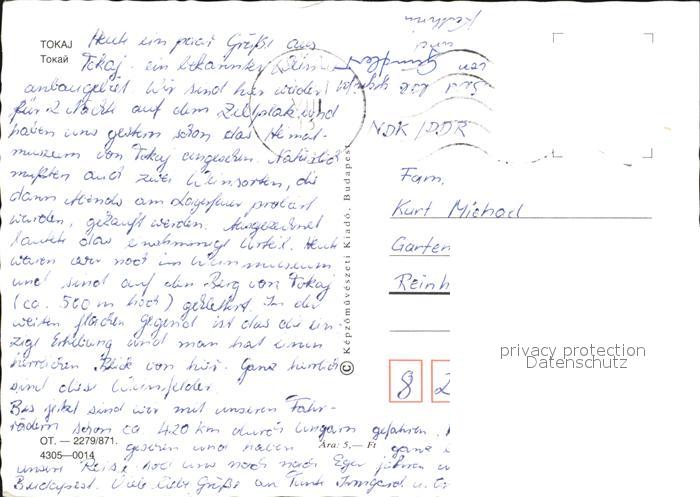 TOKAJ
Токай
Heute ein paar Grüße aus
Tokaj - ein bekanntes Wein-
anbaugebiet. Wir sind hier wieder
für 2 Nächte auf dem Zeltplatz und
haben uns gestern schon das Heimat-
museum von Tokaj angesehen. Natürlich
mußten auch zwei Weinsorten, die
dann Abends am Lagerfeuer probiert
wurden, gekauft werden. Ausgezeichnet
lautete das einstimmige Urteil. Heute
waren wir noch im Weinmuseum
und sind auf den Berg von Tokaj
(ca. 500 m hoch) geklettert. In der
weiten flachen Gegend ist das die ein-
zige Erhebung und man hat einen
herrlichen Blick von hier. Ganz herrlich
sind diese Weinfelder.
Bis jetzt sind wir mit unseren Fahr-
rädern schon ca 420 km durch Ungarn gefahren,
gesehen und haben ganz
unsere Reise soll uns noch nach Eger führen u
Budapest. Viele liebe Grüße an Tante Irmgard u.
von Gunter
und
Kathrin
OT. — 2279/871.
4305—0014
Ára: 5,— Ft
© Képzőművészeti Kiadó, Budapest
NDK / DDR
Fam.
Kurt Michael
Garten
Reinh
8 2
privacy protection
Datenschutz